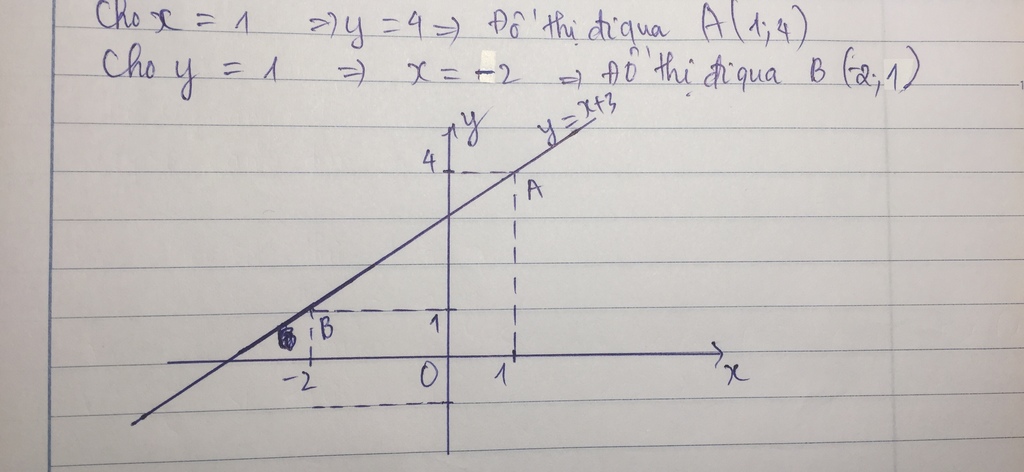 Cho x = 1 => y = 4 => Đồ thị đi qua A(1;4)
Cho y = 1 => x = -2 => Đồ thị đi qua B (-2;1)
y
y = x+3
4
A
B
1
-2
0
1
x